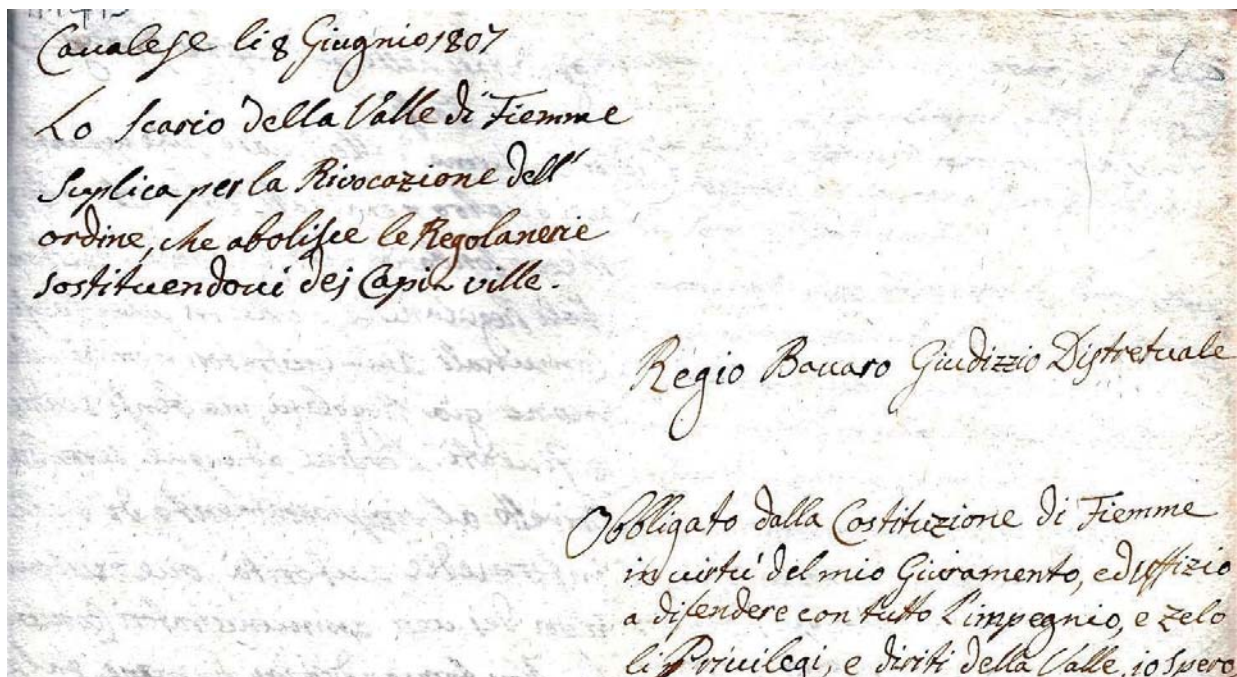 Cavalese li 8 Giugnio 1807
Lo Scario della Valle di Fiemme
Suplica per la Rivocazione dell'
ordine, che abolisce le Regolanerie
sostituendovi dej Capi ville.
Regio Bavaro Giudizzio Distretuale
Obbligato dalla Costituzione di Fiemme
in virtú del mio Giuramento, ed Uffizio
a difendere con tutto l'impegnio, e zelo
li Privilegi, e diriti della Valle, io spero,